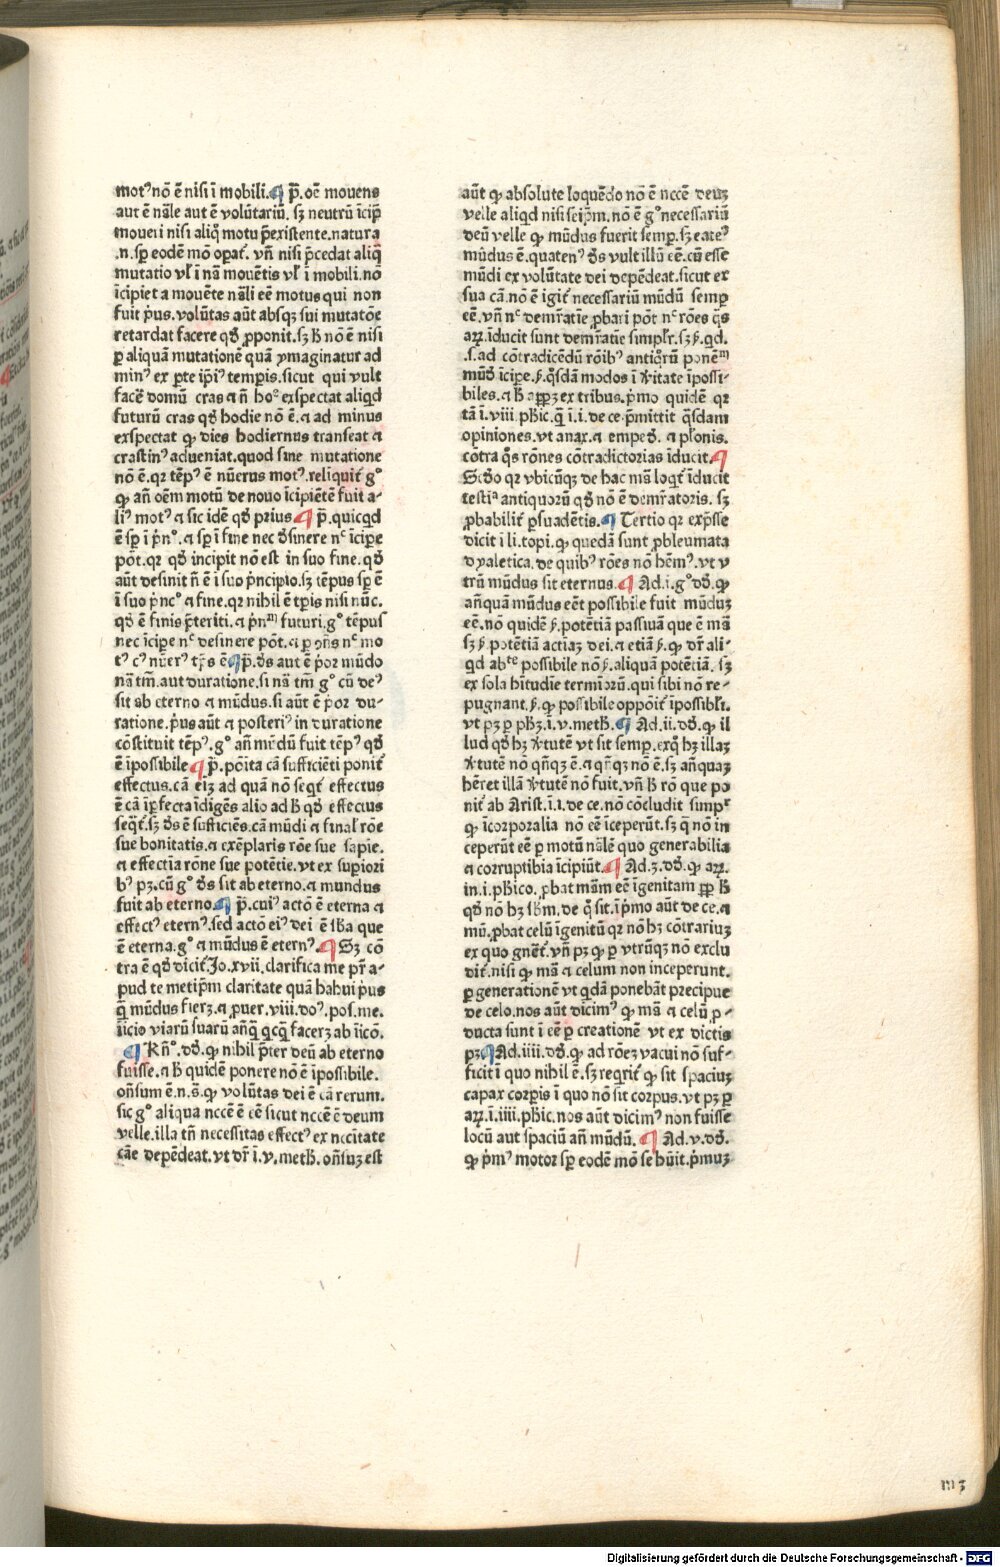 motꝰ nō ē nisi ī mobili. ¶ p̄. oē mouens
aut ē nāle aut ē volūtariū. sꝫ neutrū īcip̄
moueri nisi aliq̄ motu p̄existente. natura
.n. sꝑ eodē mō opat᷑. vn̄ nisi p̄cedat aliq̄
mutatio vl̓ ī nā mouētis vl̓ ī mobili. nō
īcipiet a mouēte nāli eē motus qui non
fuit p̓us. volūtas aūt absqꝫ sui mutatōe
retardat facere qd̓ ꝓponit. sꝫ h̓ nō ē nisi
ꝑ aliquā mutationē quā ymaginatur ad
minꝰ ex ꝑte ip̄iꝰ temꝑis. sicut qui vult
facē domū cras ⁊ n̄ hoᵉ exspectat aliqd
futurū cras qd̓ hodie nō ē. ⁊ ad minus
exspectat ꝙ dies hodiernus transeat ⁊
crastinꝰ adueniat. quod sine mutatione
nō ē. qꝛ tēpꝰ ē nūerus motꝰ. reliquit᷑ gͦ
ꝙ an̄ oēm motū de nouo īcipiētē fuit a-
liꝰ motꝰ ⁊ sic idē qd̓ prius ¶ p̄. quicqd
ē sꝑ ī p̓nͦ. ⁊ sꝑ ī fine nec d̓sinere nᶜ īcipe
pōt. qꝛ qd̓ incipit nō est in suo fine. qd̓
aūt desinit n̄ ē ī suo p̓ncipio. sꝫ tēpus sꝑ ē
ī suo p̓ncͦ ⁊ fine. qꝛ nihil ē tꝑis nisi nūc.
qd̓ ē finis p̄teriti. ⁊ p̓nᵐ futuri. gͦ tēpus
nec īcipe nᶜ desinere pōt. ⁊ ꝑ ꝯn̄s nᶜ mo
tꝰ cꝰ nūerꝰ tp̄s ē ¶ p̄. d̓s aut ē p̓or mūdo
nā tm̄. aut duratione. si nā tm̄ gͦ cū deꝰ
sit ab eterno ⁊ mūdus. si aūt ē p̓or du-
ratione. p̓us aūt ⁊ posteriꝰ in duratione
cōstituit tēpꝰ. gͦ an̄ mūdū fuit tēpꝰ qd̓
ē īpossibile ¶ p̄. pōita cā sufficiēti ponit᷑
effectus. cā eiꝫ ad quā nō seqt᷑ effectus
ē cā īꝑfecta īdigēs alio ad h̓ qd̓ effectus
seqt᷑. sꝫ d̓s ē sufficiēs. cā mūdi ⁊ final̓ rōe
sue bonitatis. ⁊ exēplaris rōe sue sapīe.
⁊ effectīa rōne sue potētie. vt ex supiori
bꝰ pꝫ. cū gͦ d̓s sit ab eterno. ⁊ mundus
fuit ab eterno. ¶ p̄. cuiꝰ actō ē eterna ⁊
effectꝰ eternꝰ. sed actō eiꝰ dei ē sb̓a que
ē eterna. gͦ ⁊ mūdus ē eternꝰ. ¶ Sꝫ cō
tra ē qd̓ dicit᷑. Jo. xvii. clarifica me pr̄ a-
pud te metip̄m claritate quā habui p̓us
q̄ mūdus fierꝫ. ⁊ ꝓuer. viii. doꝰ. pos. me.
īicio viarū suarū an̄q̄ qcq̄ facerꝫ ab īicō.
¶ Rn̄ͦ. dd̓. ꝙ nihil p̄ter deū ab eterno
fuisse. ⁊ h̓ quidē ponere nō ē īpossibile.
on̄sum ē. n. s̄. ꝙ volūtas dei ē cā rerum.
sic gͦ aliqua nccē ē eē sicut nccē ē deum
velle. illa tn̄ necessitas effectꝰ ex ncc̄itate
cāe depēdeat. vt dr̄ ī. v. meth̓. on̄suꝫ est
aūt ꝙ absolute loquēdo nō ē nccē deuꝫ
velle aliqd nisi seip̄m. nō ē gͦ necessariū
deū velle ꝙ mūdus fuerit semp. sꝫ eateꝰ
mūdus ē. quatenꝰ d̓s vult illū eē. cū esse
mūdi ex volūtate dei depēdeat. sicut ex
sua cā. nō ē igit᷑ necessariū mūdū semꝑ
eē. vn̄ nᶜ demr̄atie ꝓbari pōt nᶜ rōes q̄s
arꝫ. īducit sunt demr̄atie simplr̓. sꝫ ẜ. qd.
.s. ad cōtradicēdū rōibꝰ antiq̄rū ponēᵐ
mūd̓ īcipe. ẜ. q̄sdā modos ī v̓itate īpossi-
biles. ⁊ h̓ apꝑꝫ ex tribus. p̓mo quidē qꝛ
tā ī. viii. ph̓ic. q̄ ī. i. de ce. p̄mittit q̄sdam
opiniones. vt anax. ⁊ emped̓. ⁊ pl̓onis.
cōtra q̄s rōnes cōtradictorias īducit. ¶
Scd̓o qꝛ vbicūqꝫ de hac mā loqt᷑ īducit
testīᵃ antiquorū qd̓ nō ē demr̄atoris. sꝫ
ꝓbabilit᷑ ꝑsuadētis. ¶ Tertio qꝛ exp̄sse
dicit ī li. topi. ꝙ quedā sunt ꝓbleumata
dyaletica. de quibꝰ rōes nō hēmꝰ. vt v
trū mūdus sit eternus. ¶ Ad. i. gͦ dd̓. ꝙ
an̄quā mūdus eēt possibile fuit mūduꝫ
eē. nō quidē ẜ. potētiā passiuā que ē mā
sꝫ ẜ. potētiā actiaꝫ dei. ⁊ etiā ẜ. ꝙ dr̄ ali-
qd abᵗᵉ possibile nō ẜ. aliquā potētiā. sꝫ
ex sola h̓itudīe termīorū. qui sibi nō re-
pugnant. ẜ. ꝙ possibile oppōit᷑ īpossibl̓i.
vt pꝫ ꝑ ph̓ꝫ. ī. v. meth̓. ¶ Ad. ii. dd̓. ꝙ il
lud qd̓ hꝫ v̓tutē vt sit semp. ex q̄ hꝫ illaꝫ
v̓tutē nō qn̄qꝫ ē. ⁊ qn̄qꝫ nō ē. sꝫ an̄quaꝫ
hēret illā v̓tutē nō fuit. vn̄ h̓ rō que po
nit᷑ ab Arist. ī. i. de ce. nō cōcludit simpᵉʳ
ꝙ īcorporalia nō eē īceperūt. sꝫ q̄ nō in
ceperūt eē ꝑ motū nālē quo generabilia
⁊ corruptibia īcipiūt. ¶ Ad. 3. dd̓. ꝙ arꝫ.
in. i. ph̓ico. ꝓbat mām eē īgenitam ꝓꝑ h̓
qd̓ nō hꝫ sb̓m. de q̄ sit. ī p̓mo aūt de ce. ⁊
mū. ꝓbat celū īgenitū qꝛ nō hꝫ cōtrariuꝫ
ex quo gnēt᷑. vn̄ pꝫ ꝙ ꝑ vtrūqꝫ nō exclu
dit᷑. nisi ꝙ mā ⁊ celum non inceperunt.
ꝑ generationē vt qdā ponebāt precipue
de celo. nos aūt dicimꝰ ꝙ mā ⁊ celū ꝓ-
ducta sunt ī eē ꝑ creationē vt ex dictis
pꝫ ¶ Ad. iiii. dd̓. ꝙ ad rōeꝫ vacui nō suf-
ficit ī quo nihil ē. sꝫ reqrit᷑ ꝙ sit spaciuꝫ
capax corꝑis ī quo nō sit corpus. vt pꝫ ꝑ
arꝫ. ī. iiii. ph̓ic. nos aūt dicimꝰ non fuisse
locū aut spaciū an̄ mūdū. ¶ Ad. v. dd̓.
ꝙ p̓mꝰ motor sꝑ eodē mō se h̓uit. p̓muꝫ
m 3
Digitalisierung gefördert durch die Deutsche Forschungsgemeinschaft - DFG